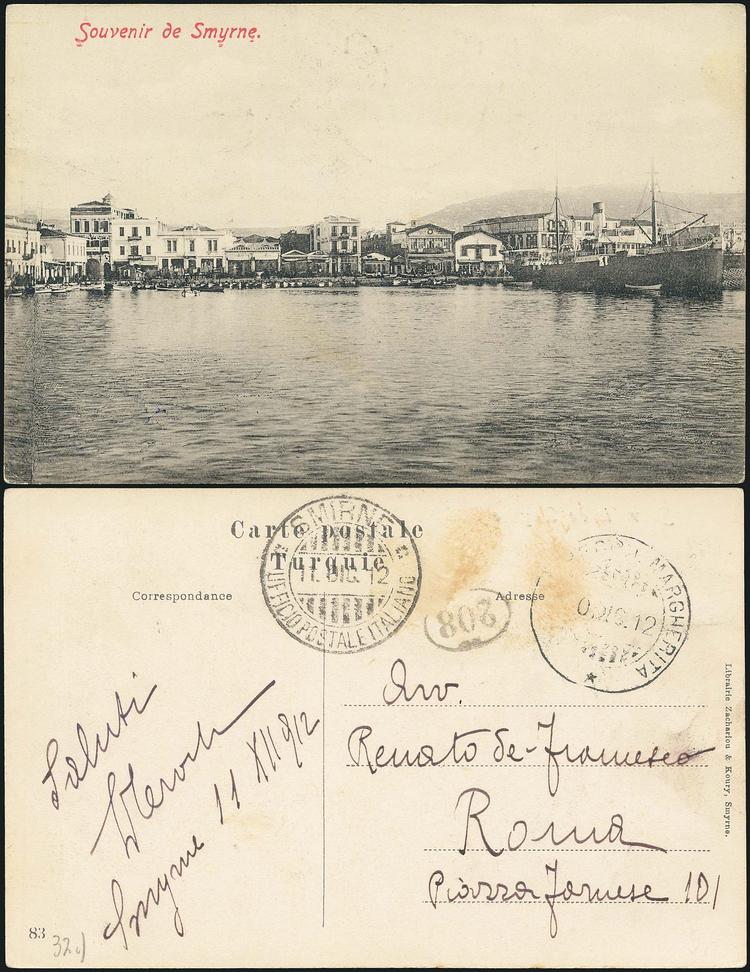 Souvenir de Smyrne.
Carte postale
Turquie
Correspondance
Adresse
SMIRNE
11. DIC. 12
UFFICIO POSTALE ITALIANO
208
MARGHERITA
DIC. 12
Saluti
Smyrne 11 XII 912
Avv.
Renato de-Francesco
Roma
Piazza Farnese 101
Librairie Zachariou & Koury, Smyrne.
83
32